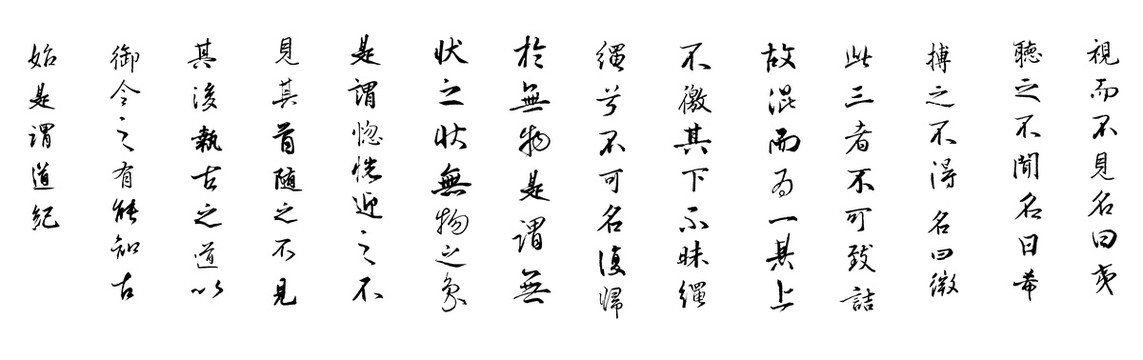 視而不見名曰夷
聽之不聞名曰希
搏之不得名曰微
此三者不可致詰
故混而為一其上
不徼其下不昧繩
繩兮不可名復歸
於無物是謂無
狀之狀無物之象
是謂惚恍迎之不
見其首隨之不見
其後執古之道以
御今之有能知古
始是謂道紀